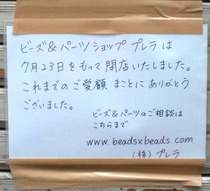 ビーズ&パーツショップ プレラ は
7月23日をもって閉店いたしました。
これまでのご愛顧 まことに ありがとう
ございました。
ビーズ&パーツのご相談は
こちらまで
www.beadsxbeads.com
(株)プレラ